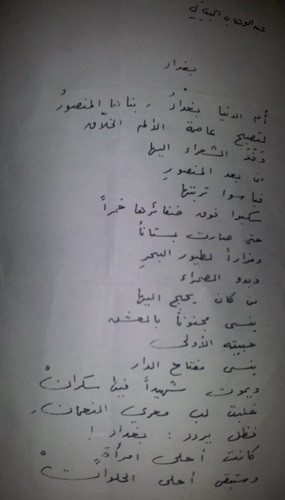 عبد الوهاب البياتي
بغداد
أم الدنيا بغدادُ، بناها المنصورُ
لتصبح عاصمة الألم الخلّاق
وَفَدَ الشعراء إليها
من بعد المنصورِ
فباسوا تربتها
سكبوا فوق ضفائرها خمراً
حتى صارت بستاناً
ومزاراً لطيور البحرِ
وبدو الصحراء
من كان يحجّ إليها
ينسى مجنوناً بالعشق
حبيبته الأولى
ينسى مفتاح الدار
ويموت شهيداً فيها سكرانْ
خلبت لب معري النعمان،
فظل يردد : بغداد !
كانت أحلى امرأةٍ
وستبقى أحلى الحلوات